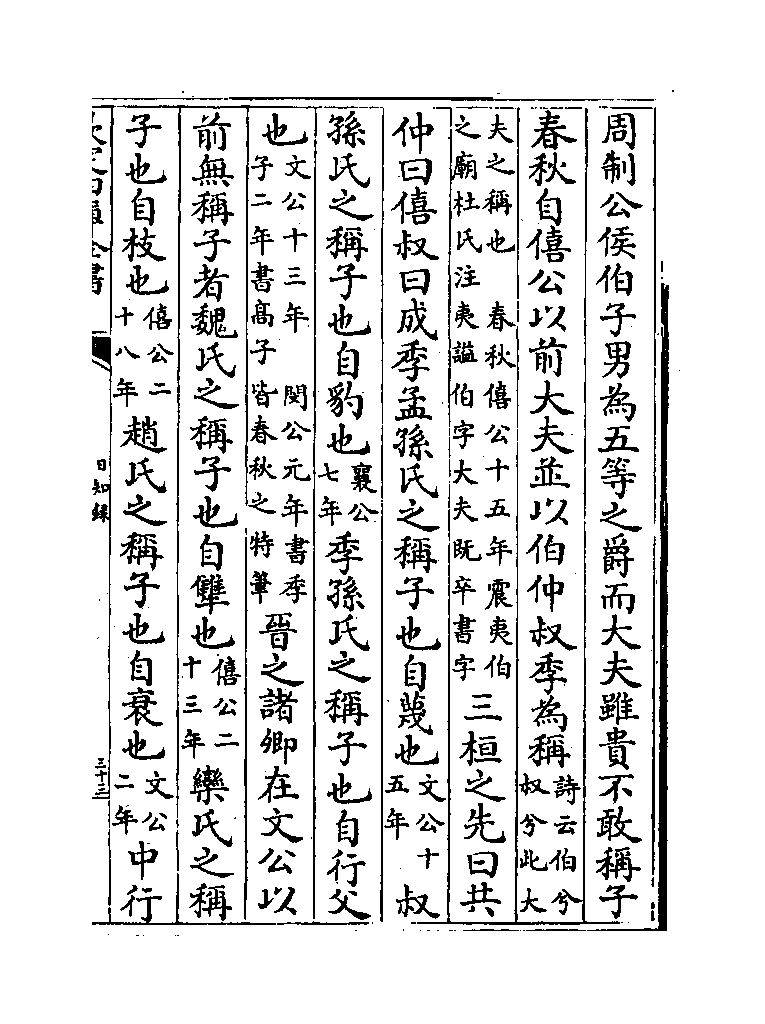 周制公侯伯子男為五等之爵而大夫雖貴不敢稱子
春秋自僖公以前大夫並以伯仲叔季為稱詩云伯兮叔兮此大
夫之稱也　春秋僖公十五年震夷伯之廟杜氏注夷謚伯字大夫既卒書字三桓之先曰共
仲曰僖叔曰成季孟孫氏之稱子也自蔑也文公十五年叔
孫氏之稱子也自豹也襄公七年季孫氏之稱子也自行父
也文公十三年　閔公元年書季子二年書髙子皆春秋之特筆晉之諸卿在文公以
前無稱子者魏氏之稱子也自犨也僖公二十三年欒氏之稱
子也自枝也僖公二十八年趙氏之稱子也自衰也文公二年中行
欽定四庫全書
日知錄
三十三